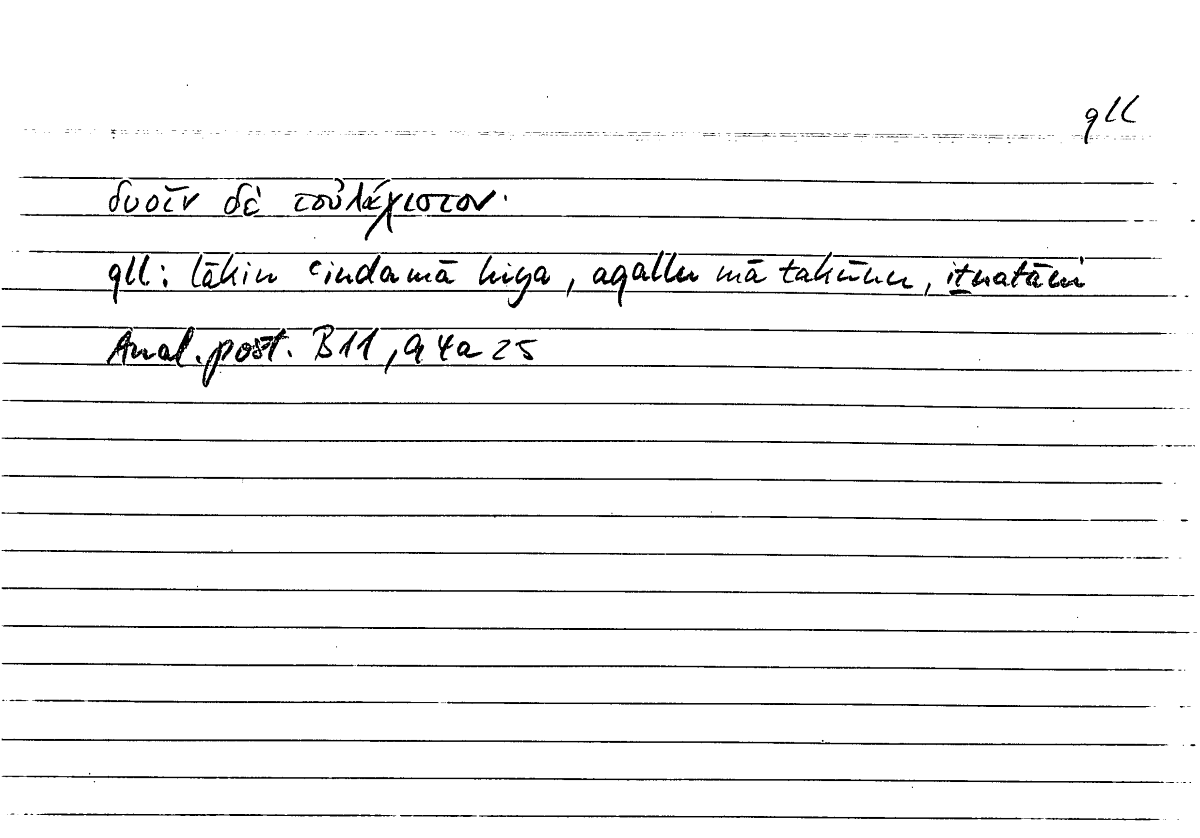 qll
δυοῖν δὲ τοὐλάχιστον·
qll: lākin ʿindamā hiya, aqallu mā takūnu, iṯnatāni
Anal. post. B11, 94a25